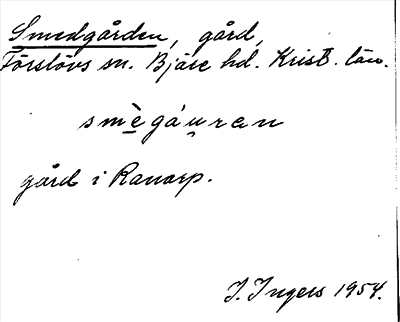 Smedgården, gård,
Förslövs sn. Bjäre hd. Krist. län.
smègáuran
gård i Ranarp.
I. Ingers 1954.